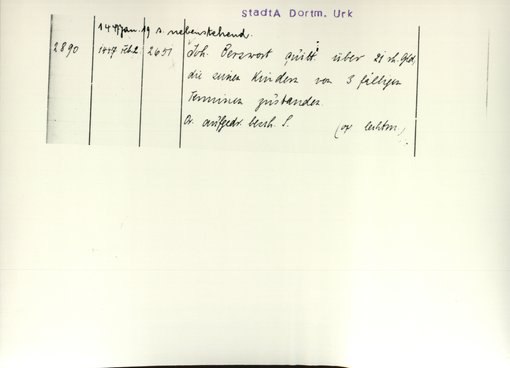 StadtA Dortm. Urk
1447 Jan. 19 s. nebenstehend.
2890 1447 Febr. 2 2651 Joh. Berswort quitt. über 21 rh. Gld.
die seinen Kindern von 3 fälligen
Terminen zustanden.
Or. aufgedr. besch. S.